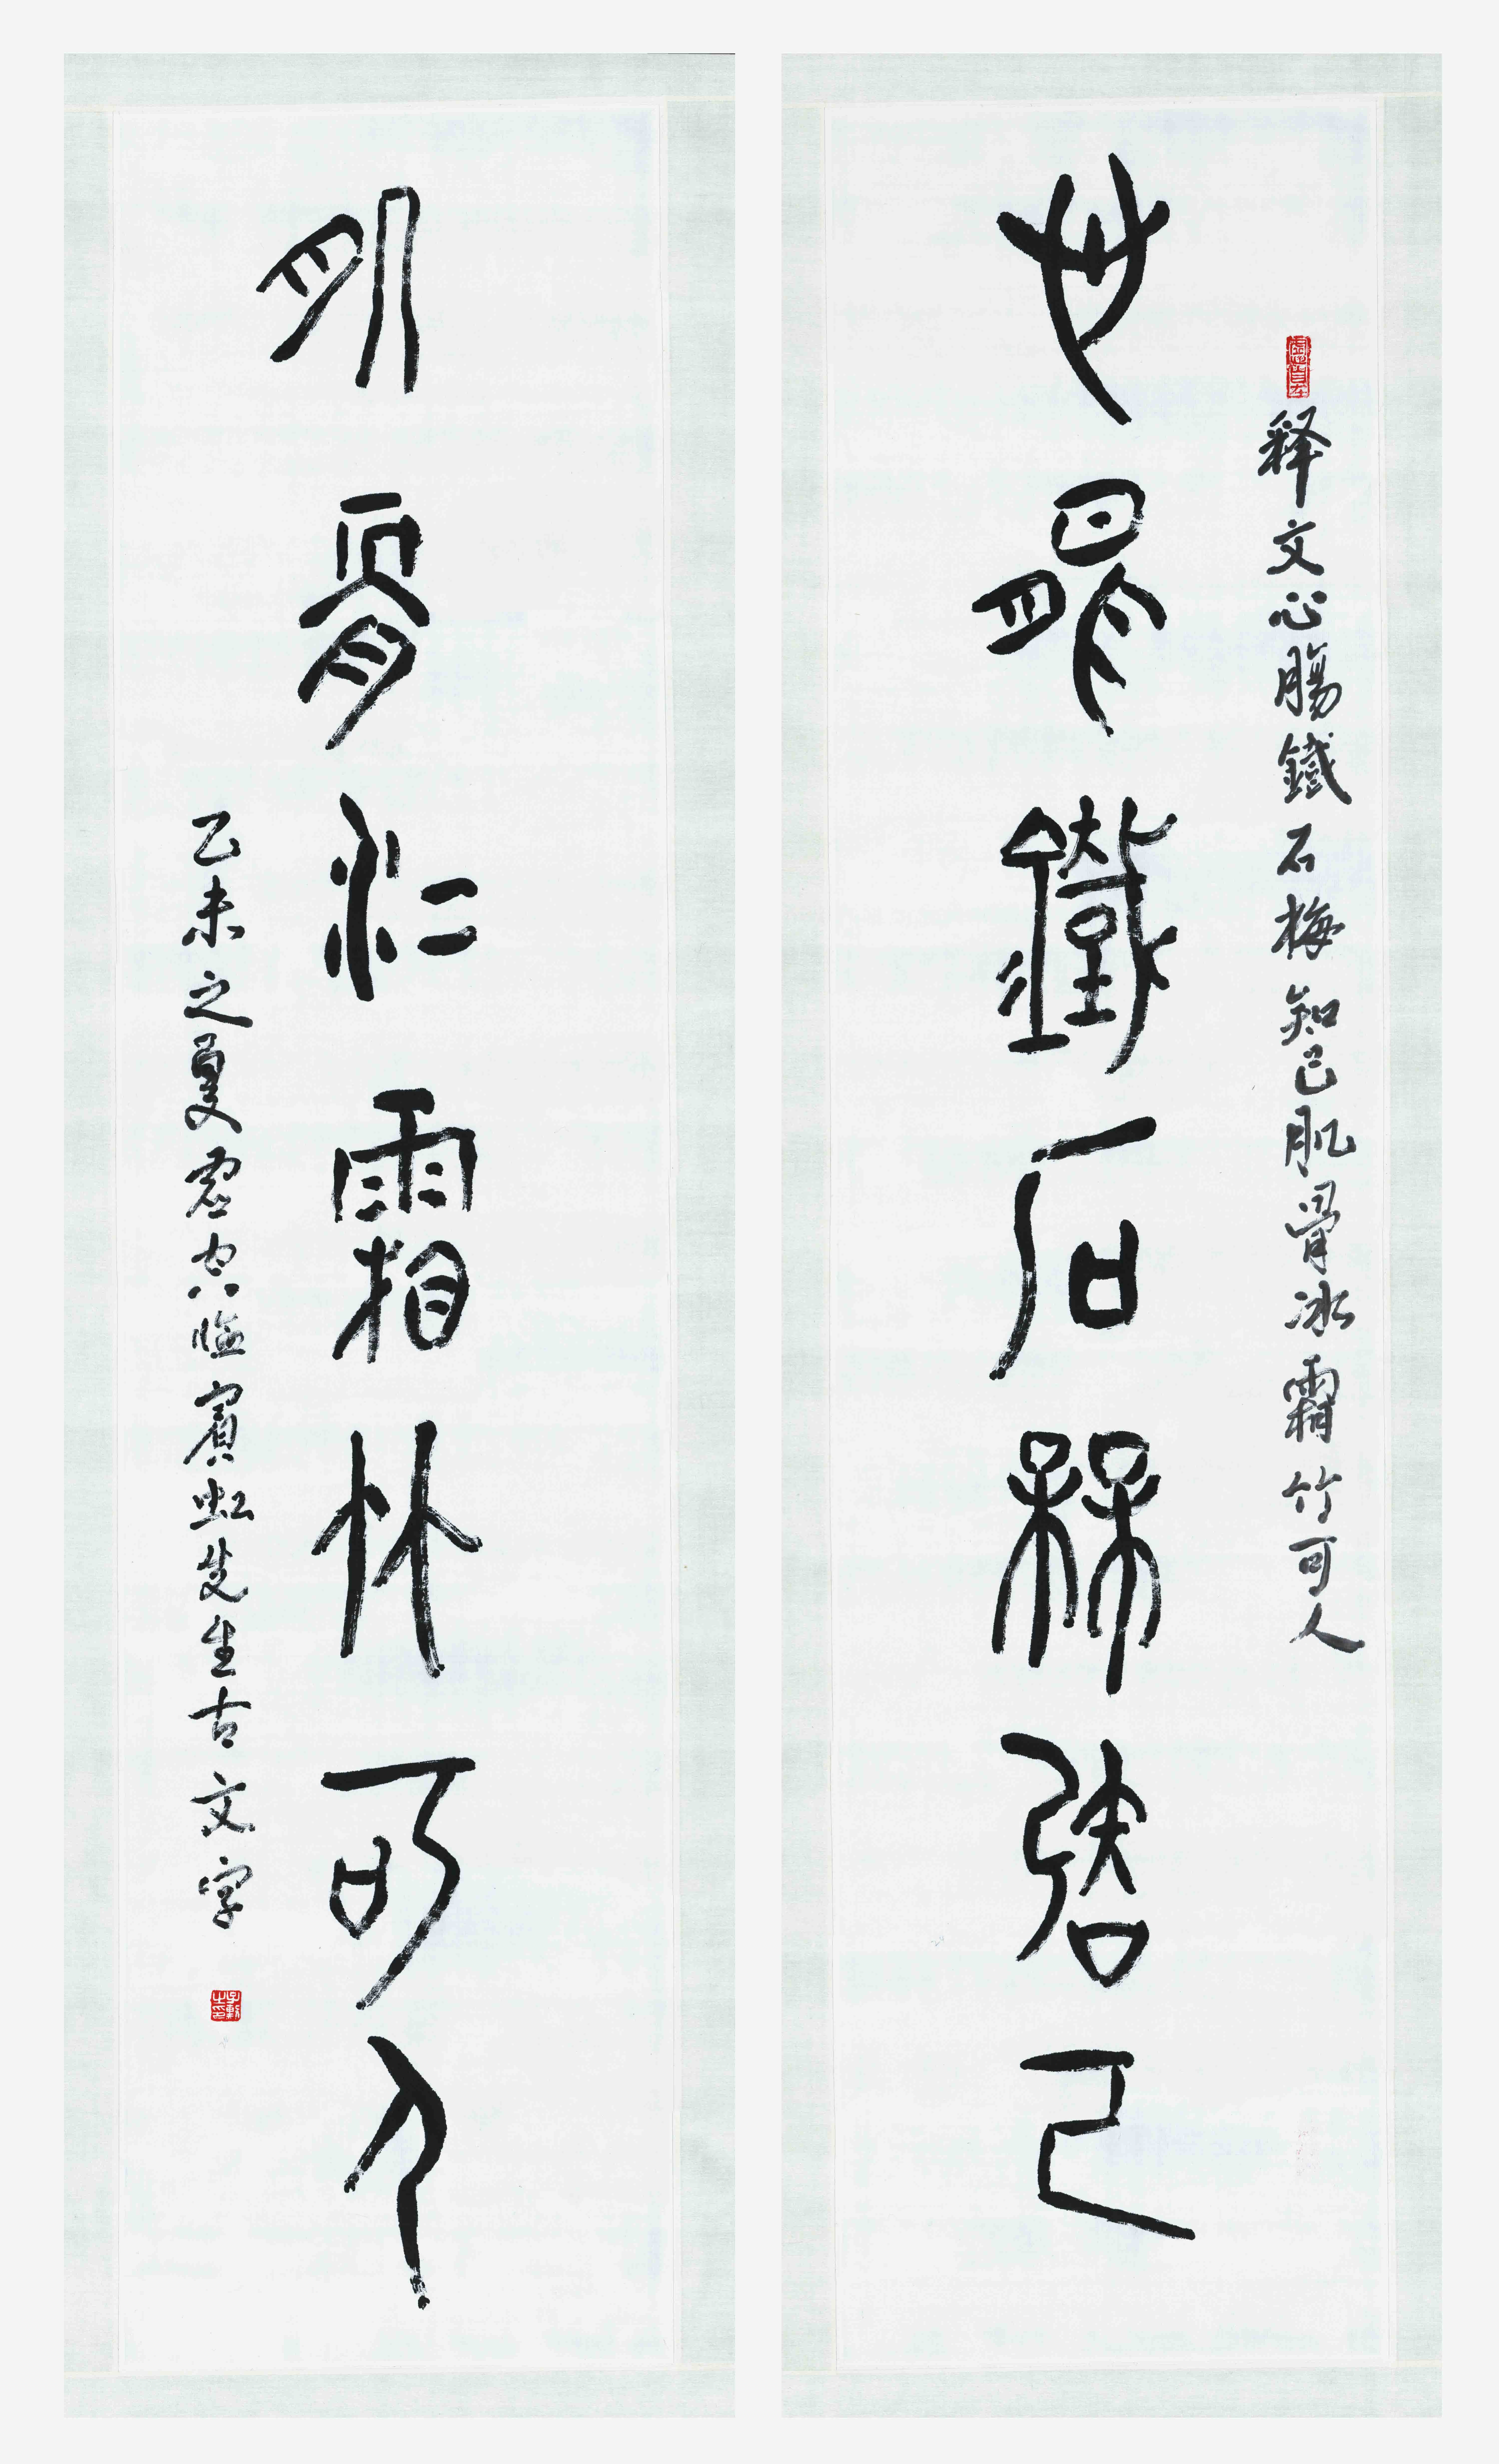 释文心腸鐵石梅知己肌骨冰霜竹可人
心腸鐵石梅知己
肌骨冰霜竹可人
乙未之夏君宏臨賓虹先生古文字